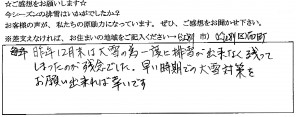 ☆ご感想をお願いします☆
今シーズンの排雪はいかがでしたか？
お客様の声が、私たちの原動力になっています。ぜひ、ご感想をお聞かせ下さい。
※差支えなければ、お住まいの地域をご記入ください→ 市）
毎年 昨年12月末は大雪の為一度に排雪が出来なく残って
しまったのが残念でした。早い時期での大雪対策を
お願い出来れば幸いです